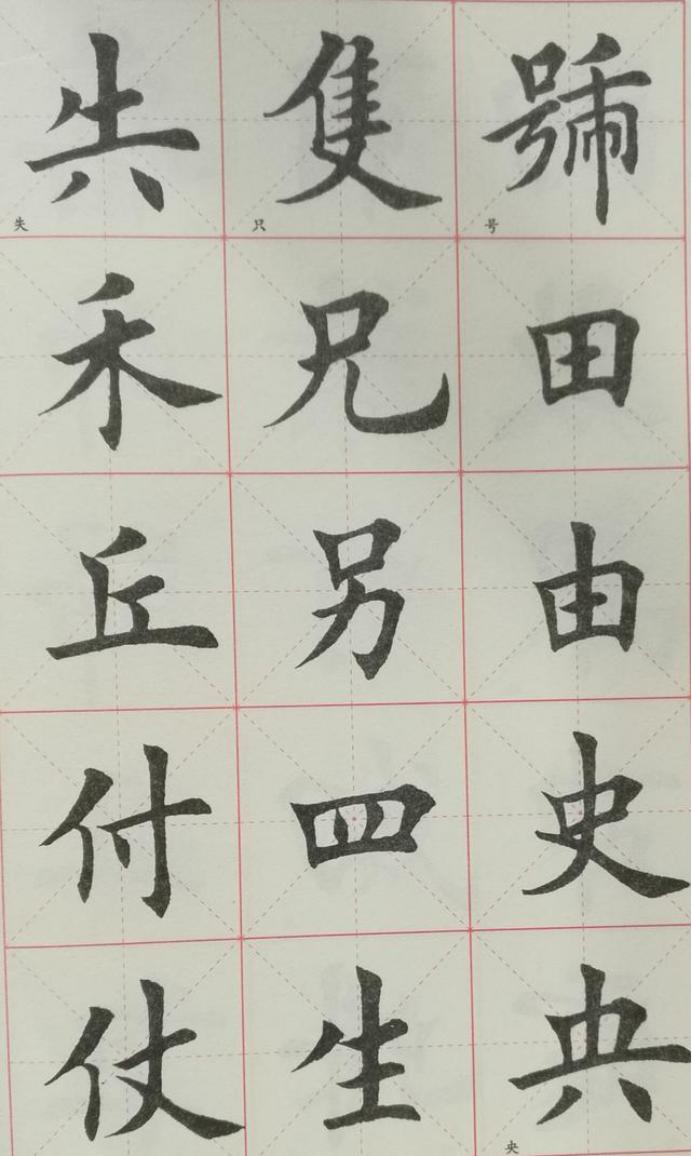 號
号
田
由
史
央
央
隻
只
兄
另
四
生
失
失
禾
丘
付
仗